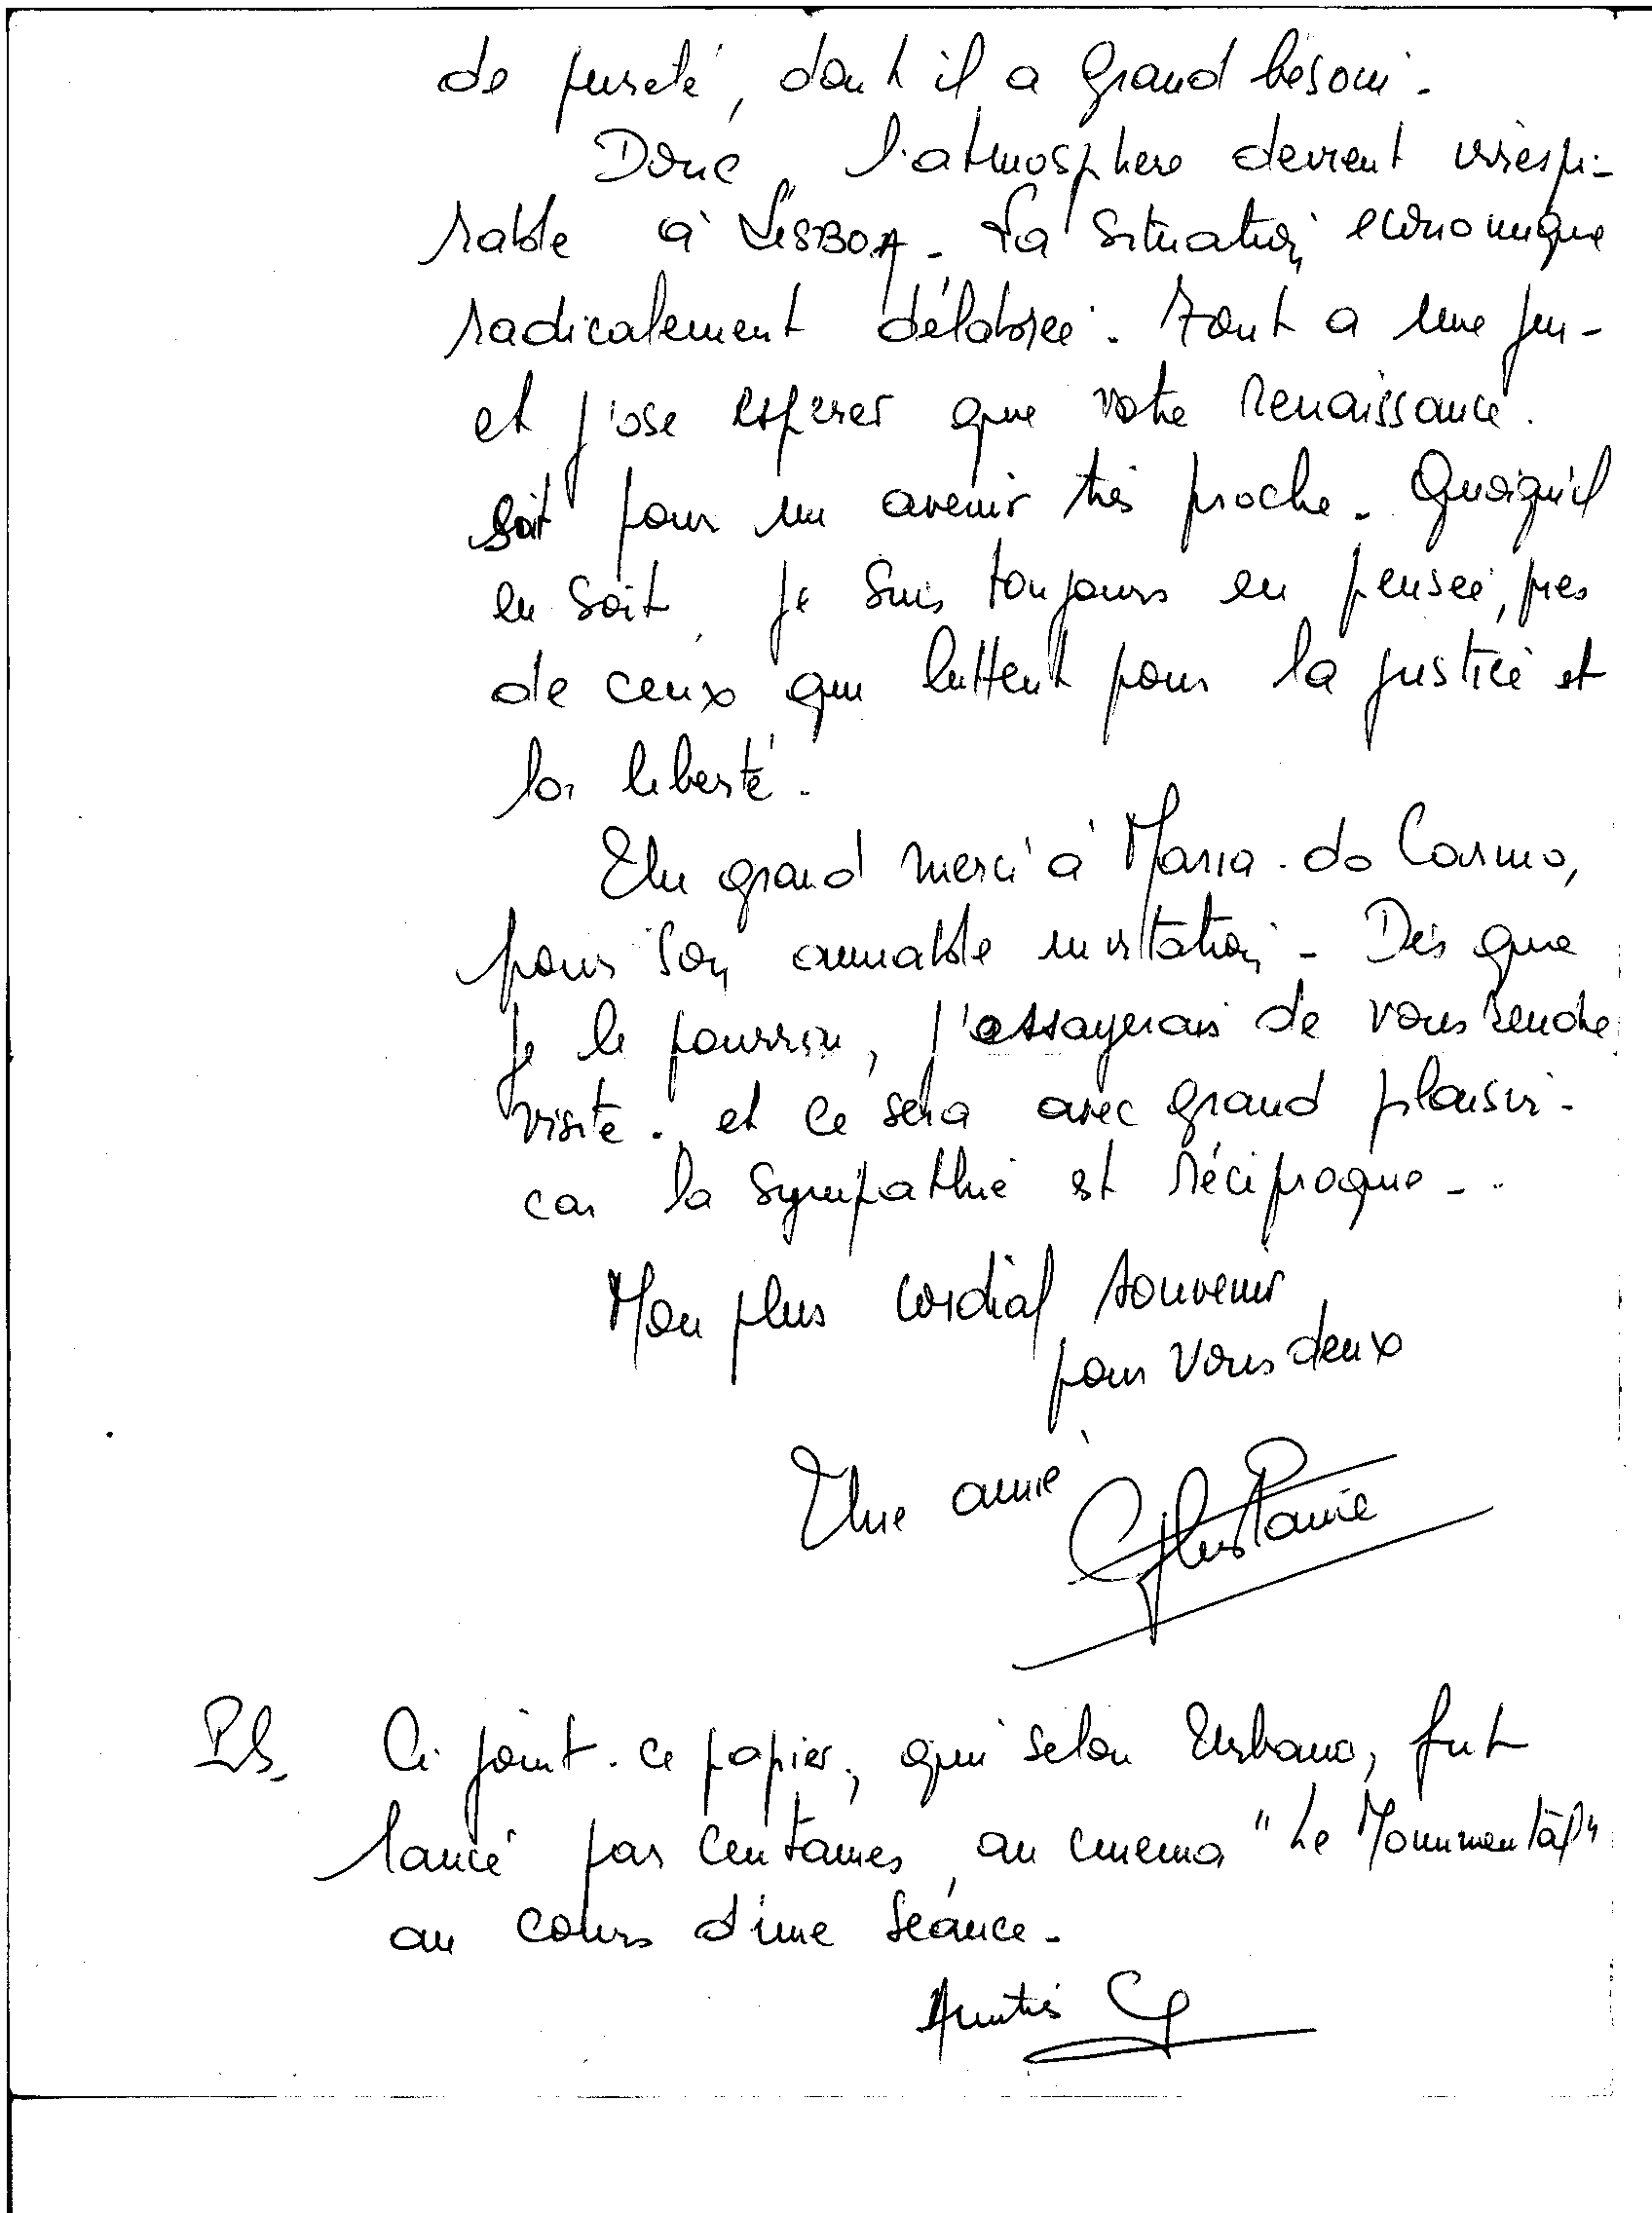 de pureté, dont il a grand besoin.
Donc, l'atmosphère devient irrespi-
rable à LISBOA. La situation économique
radicalement délabrée. Tout a une fin-
et j'ose espérer que votre renaissance.
soit pour un avenir très proche. Quoiqu'il
en soit, je suis toujours en pensée, près
de ceux qui luttent pour la justice et
la liberté.
Un grand merci à Maria-do Carmo,
pour son aimable invitation - Dès que
je le pourrai, j'essayerais de vous rendre
visite. et ce sera avec grand plaisir-
car la sympathie est réciproque-..
Mon plus cordial souvenir
pour vous deux
Une amie
PS. Ci joint. ce papier, qui selon Urbano, fut
lancé par centaines, au cinema "Le Monumental"
au cours d'une séance-
Amitiés